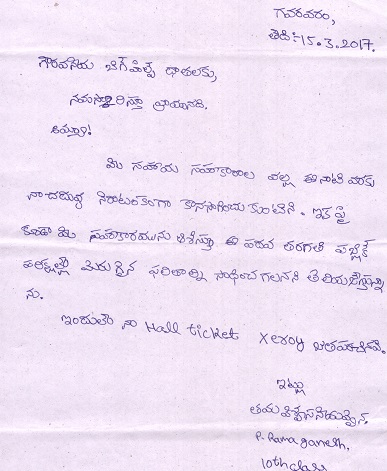 గవరవరం,
తేది:-15.3.2017.
గౌరవనీయ దాతలకు,
నమస్కరిస్తూ వ్రాయునది.
అమ్మా!
మీ సహాయ సహకారాల వల్ల ఈనాటి వరకు
నా చదువు నిరాటంకంగా కొనసాగించుకుంటిని. ఇక పై
కూడా మీ సహకారమును ఆశిస్తూ ఈ పదవ తరగతి పబ్లిక్
పరీక్షల్లో మెరుగైన ఫలితాల్ని సాధించగలనని తెలియజేస్తున్నా
ను.
ఇందుతో నా Hall ticket Xeroy జతపరచితిని.
ఇట్లు
తమ విశ్వసనీయుడైన,
P. Rama ganesh,
10th class